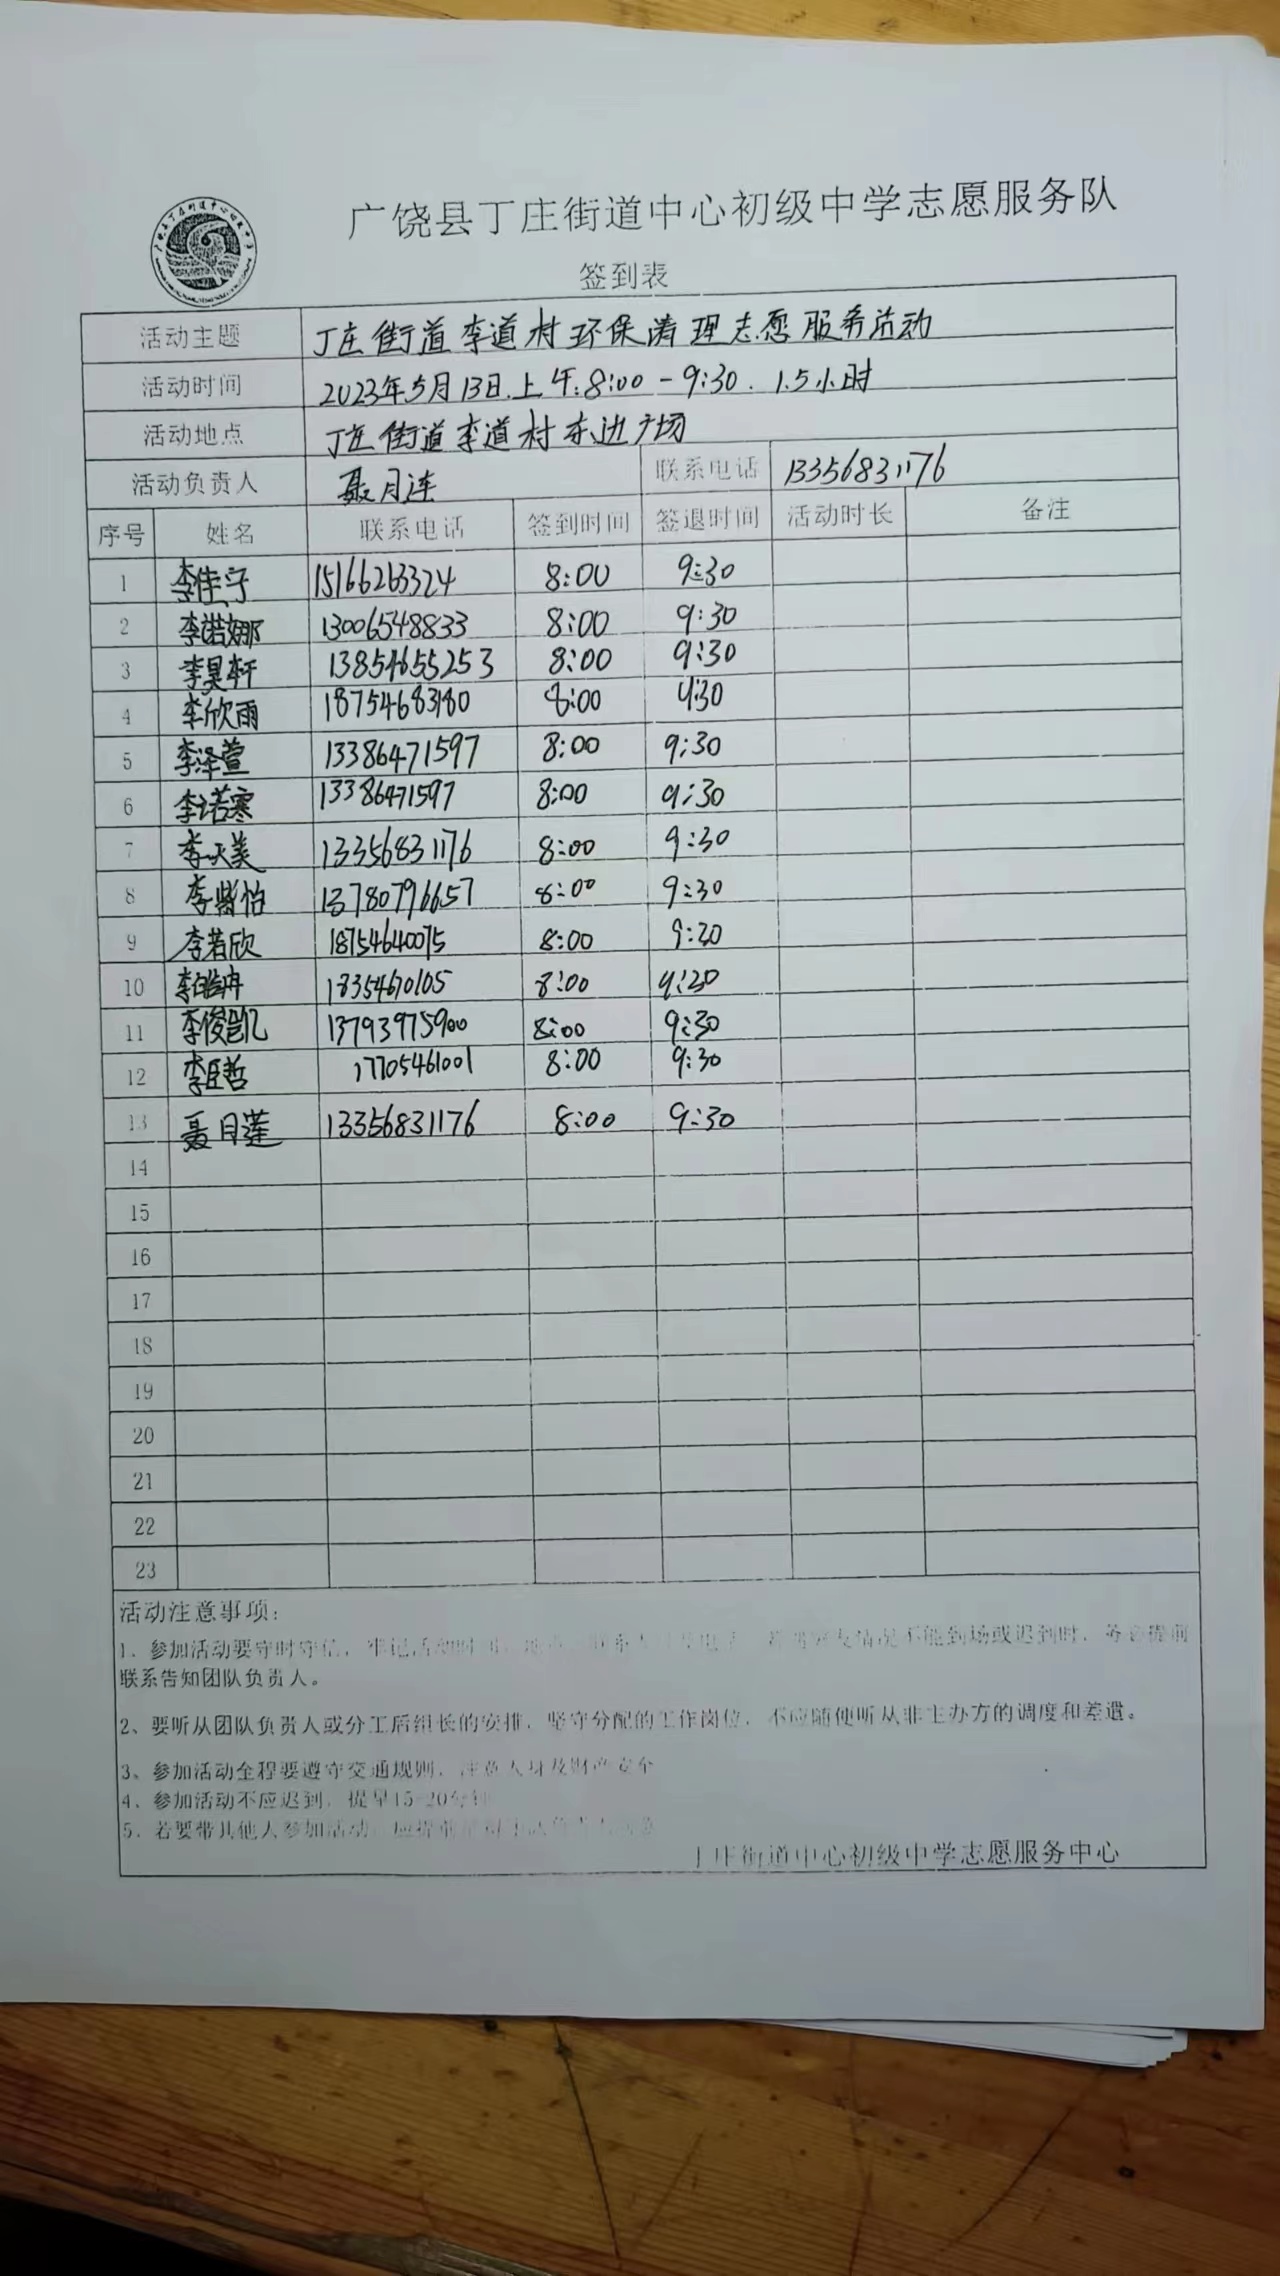 广饶县丁庄街道中心初级中学志愿服务队
签到表
活动主题 丁庄街道李道村环保清理志愿服务活动
活动时间 2023年5月13日上午:8:00-9:30. 1.5小时
活动地点 丁庄街道李道村东边广场
活动负责人 聂月连 联系电话 13356831176
序号 姓名 联系电话 签到时间 签退时间 活动时长 备注
1 李佳 15166263324 8:00 9:30
2 李诺娜 13006548833 8:00 9:30
3 李昊轩 13854655253 8:00 9:30
4 李欣雨 18754683180 8:00 9:30
5 李泽萱 13386471597 8:00 9:30
6 李诺寒 13386471597 8:00 9:30
7 李天美 13356831176 8:00 9:30
8 李紫怡 13780796657 8:00 9:30
9 李若欣 18754640075 8:00 9:20
10 李皓冉 18354670105 8:00 9:20
11 李俊凯 13793975900 8:00 9:30
12 李臣哲 17705461001 8:00 9:30
13 聂月莲 13356831176 8:00 9:30
14
15
16
17
18
19
20
21
22
23
活动注意事项:
1、参加活动要守时守信,牢记活动时间、不能到场或迟到时,务必提前
联系告知团队负责人。
2、要听从团队负责人或分工后组长的安排,坚守分配的工作岗位,不应随便听从非主办方的调度和差遣。
3、参加活动全程要遵守交通规则,注意人身及财产安全
4、参加活动不应迟到,提早15-20分钟
5、若要带其他人参加活动,应提前
丁庄街道中心初级中学志愿服务中心